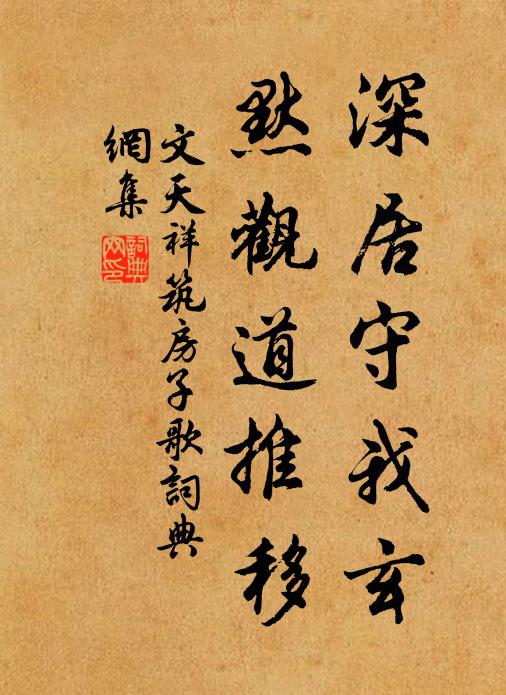 深居守我玄
默觀道推移
文天祥筑房子歌詞典
網集
詞典网印